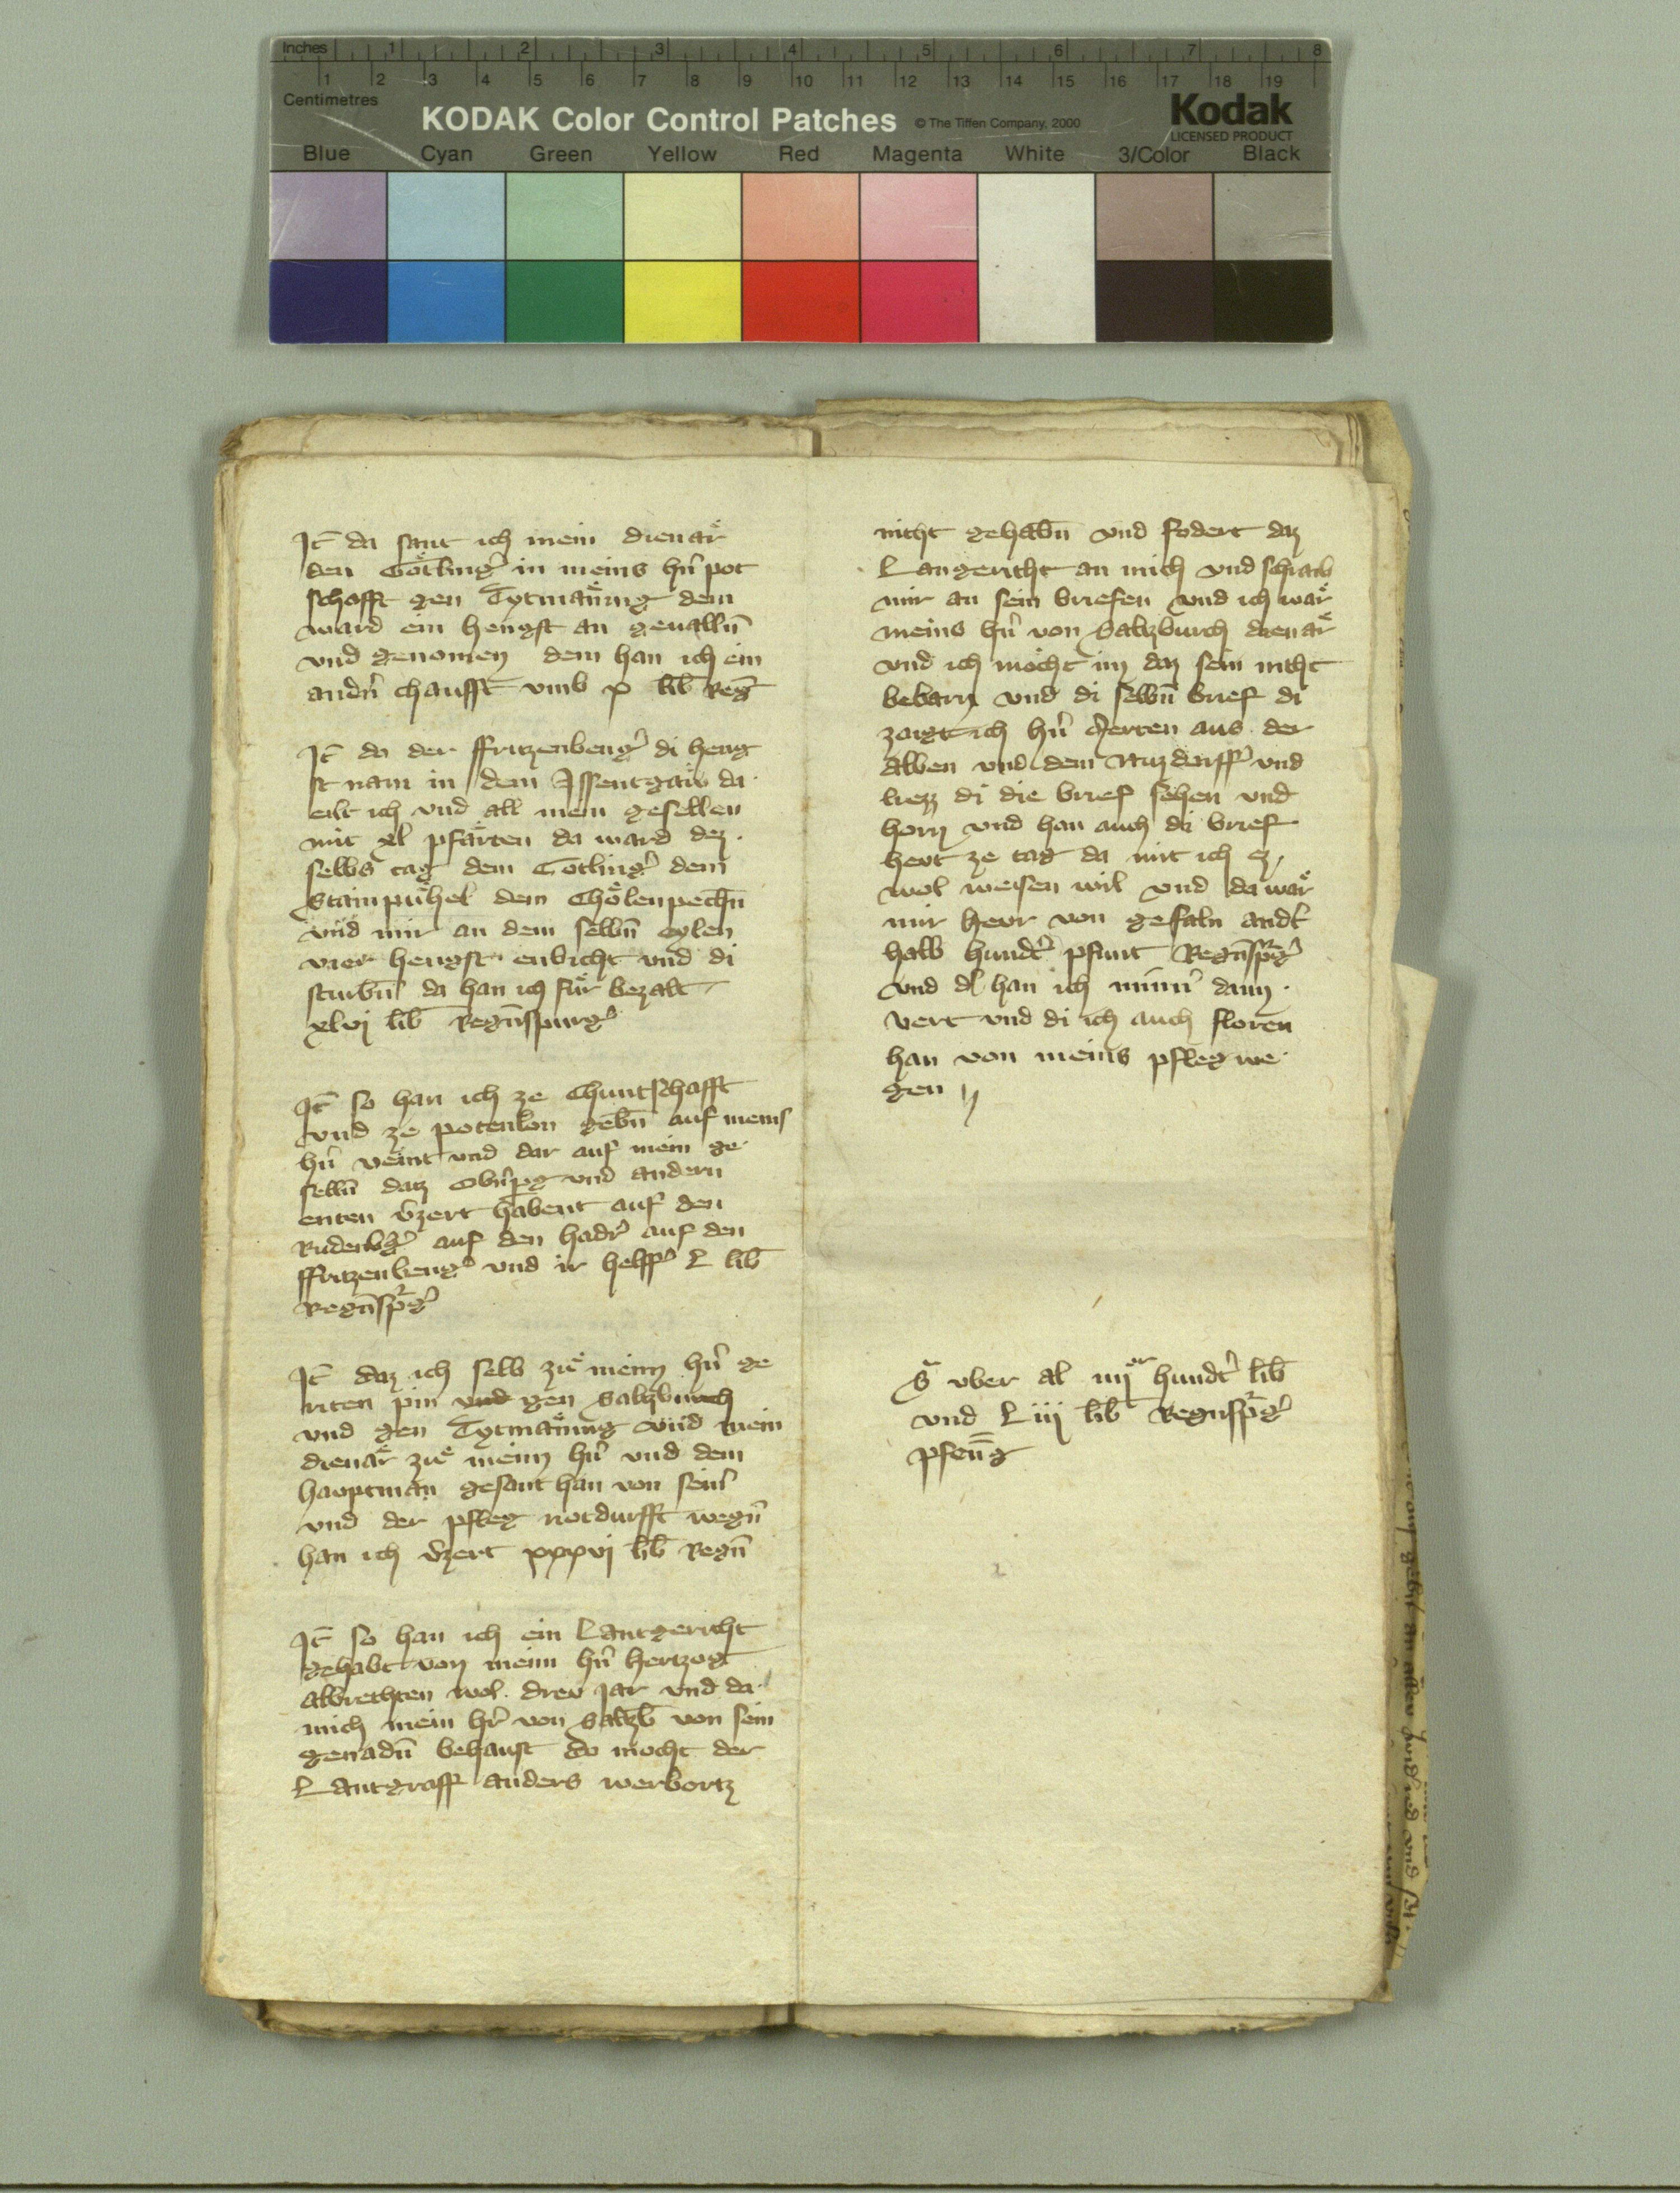 Inches 1 2 3 4 5 6 7 8
1 2 3 4 5 6 7 8 9 10 11 12 13 14 15 16 17 18 19
Centimetres
KODAK Color Control Patches © The Tiffen Company, 2000 Kodak
LICENSED PRODUCT
Blue Cyan Green Yellow Red Magenta White 3/Color Black
Jt̄ da sant ich mein dienaͤr
den Goͤtling̉ in meins hn̉ pot
schafft gen Tytmaͤning dem
ward ein hengst an geualln̄
vnd genomen dem han ich ein
andn̉ chaufft vmb x lib̄ Reḡ
Jt̄ do der ffritzenbeng̉ di heng
st nam in dem Jssentgaͤw da
eilt ich vnd all mein gesellen
mit xl pfaͤrten da ward dez
selbs tag dem Gotling̉ dem
Stainpuͤhel̉ dem Choͤlenpechn̄
vnd mir an dem selbn̄ eylen
vier hengst enbicht vnd di
sturbn̄ da han ich fuͤr bezalt
xlvj lib̄ Regn̄spurg̉
Jt̄ so han ich ze Chuntschafft
vnd ze potenlon gebn̄ auf meins
hn̉ veint vnd dar auf mein ge
selln̄ datz Obn̉pg vnd andern
enten v̉zert habent auf den
Rudenbg̉ auf den hadr̉ auf den
ffritzenbeng̉ vnd ir helff̉ L lib̄
Regn̄spg̉
Jt̄ daz ich selb zuͤ meinn hn̉ ge
riten pin vnd gen Salzburch
vnd gen Tytmaͤning vnd mein
dienaͤr zuͤ meinn hn̉ vnd dem
hauptman gesant han von sein̉
vnd der pfleg notdurfft wegn̄
han ich v̉zert xxxvj lib̄ Regn̄
Jt̄ so han ich ein Lantgericht
gehabt von meinn hn̉ hertzog
Albrechten wol drew Jar vnd da
mich mein hr̉ von Salzb̄ von sein
genadn̄ behaust do mocht der
Lantgraff anders werbortz
nicht gehabn̄ vnd fodert daz
Langericht an mich vnd schraib
mir an sein briefen vnd ich waͤr
meins hn̉ von Salzburch dienaͤr
vnd ich moͤcht im daz sein nicht
bebarn vnd di selbn̄ brief di
zaigt ich hn̉ Mertten aus der
Alben vnd dem Nuzdarff̉ vnd
liezz di die brief sehen vnd
horn vnd han auch di brief
hevt ze tag da mit ich ez
wol weisen wil vnd da waͤr
mir hevr von gefaln andt̉
halb hundt̉ pfunt Regn̄spg̉
vnd d̉ han ich minn̉ dann
vert vnd di ich auch floren
han von meins pfleg we
gen
Sᷓ vber al iiij hundt̉ lib̄
vnd Liij lib̄ Regnspg̉
pfen̄g